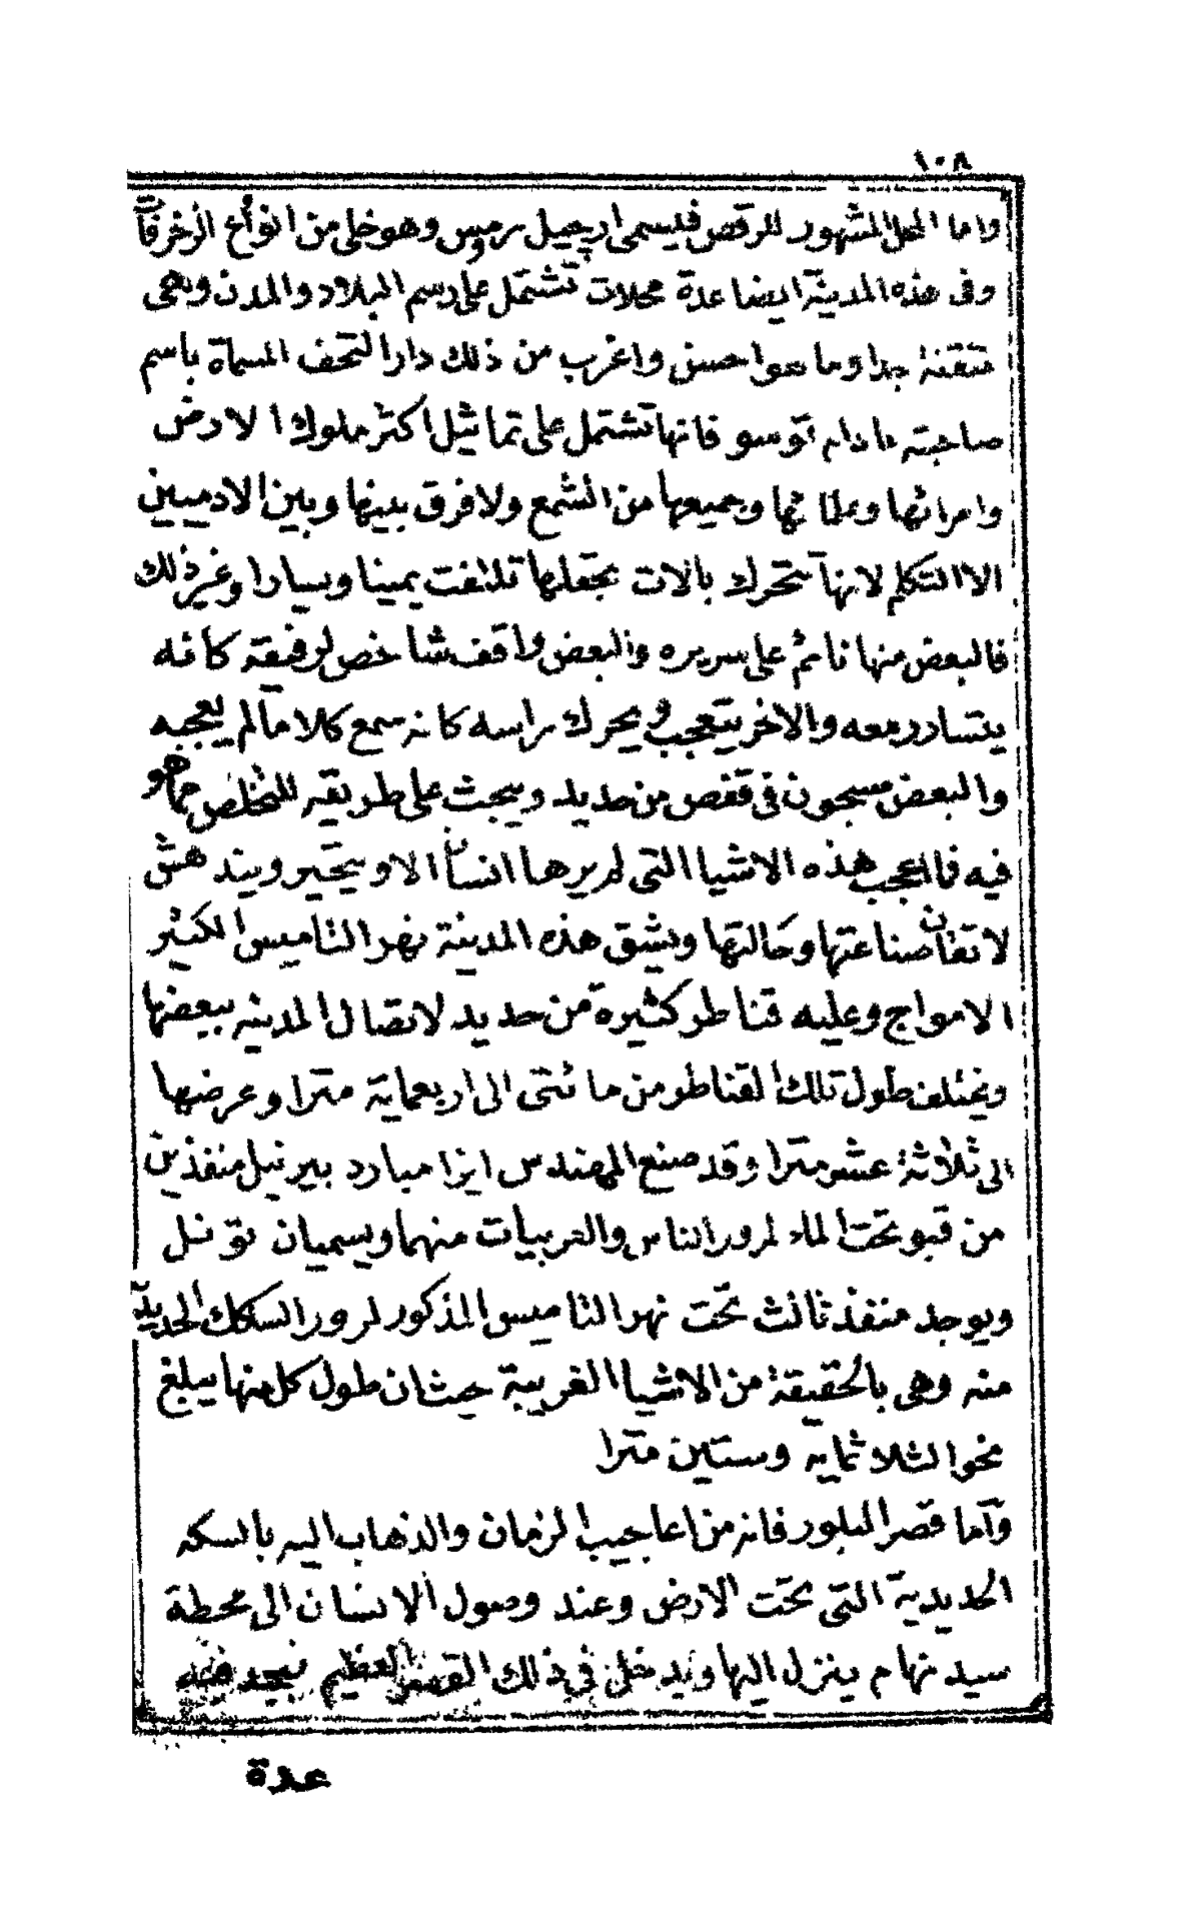 ١٠٨
واما المحل المشهور للرقص فليسمى ارجيل رمس وهو خلى من انواع الزخرفآ
وفى هذه المدينة ايضا عدة محلات تشتمل على رسم البلاد والمدن وهى
متقنة جدا وما هو احسن واغرب من ذلك دار التحف المسماة باسم
صاحبته مادام توسو فانها تشتمل على تماثيل اكثر ملوك الارض
وامرائها وعلمائها وجميعها من الشمع ولا فرق بينها وبين الادميين
الا التكلم لانها تتحرك بالات تجعلها تلتفت يمينا ويسارا وغير ذلك
فالبعض منها نائم على سريره والبعض واقف شاخص لرفيقه كانه
يتسارر معه والاخر يتعجب ويحرك راسه كانه سمع كلاما لم يعجبه
والبعض مسجون فى قفص من حديد ويبحث على طريقه للتخلص مما هو
فيه فاالعجب هذه الاشيا التى لم يرها انسان الا ويتحير ويندهش
لاتقان صناعتها وحالتها ويشق هذه المدينة نهر التاميس الكثير
الامواج وعليه قناطر كثيرة من حديد لاتصال المدينه ببعضها
ويختلف طول تلك القناطر من مائتى الى اربعماية مترا وعرضها
الى ثلاثة عشر مترا وقد صنع المهندس ايزامبارد بيرنيل منفذين
من قبو تحت الماء لمرور الناس والعربيات منهما ويسميان تونل
ويوجد منفذ ثالث تحت نهر التاميس المذكور لمرور السكك الحديدية
منه وهى بالحقيقة من الاشيا الغريبة حيث ان طول كل منها يبلغ
نحو الثلاثماية وستين مترا
وآما قصر البلور فانه من اعاجيب الزمان والذهاب اليه بالسكه
الحديدية التى تحت الارض وعند وصول الانسان الى محطة
سيدنهام ينزل اليها ويدخل فى ذلك القصر العظيم فيجد فيه
عدة